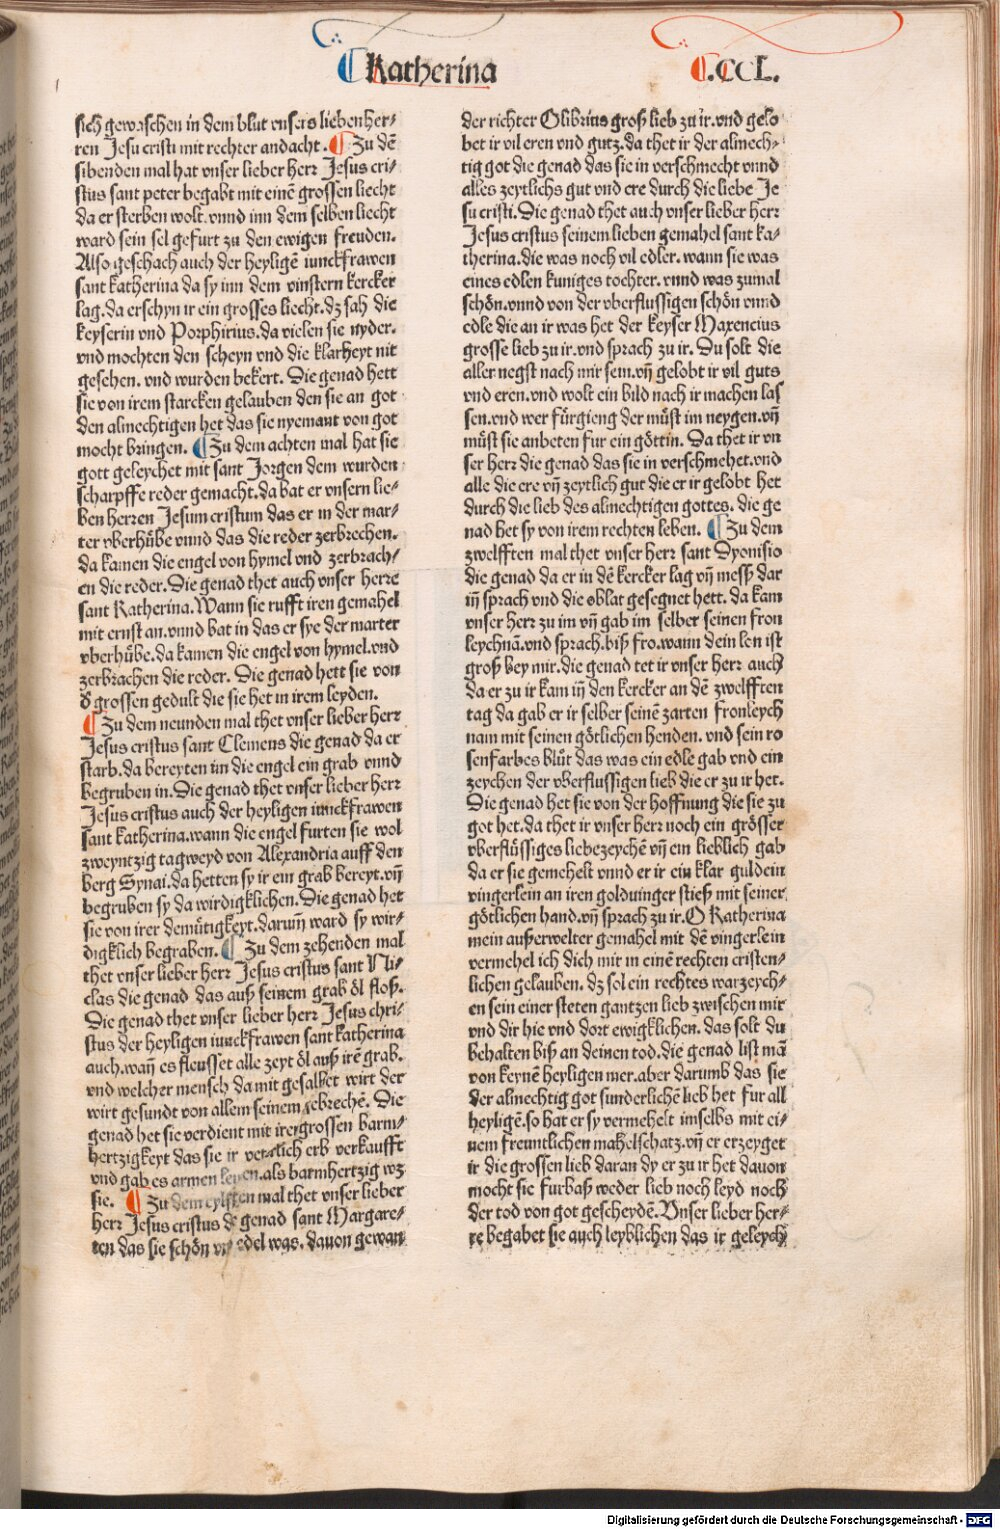 Katherina
.CCL.
sich gewaschen in dem blut vnsers lieben her⸗
ren Jesu cristi mit rechter andacht. Zu dē
sibenden mal hat vnser lieber herr Jesus cri⸗
stus sant peter begabt mit einē grossen liecht
da er sterben wolt. vnnd inn dem selben liecht
ward sein sel gefurt zu den ewigen freuden.
Also geschach auch der heyligē iunckfrawen
sant katherina da sy inn dem vinstern kercker
lag. da erschyn ir ein grosses liecht. dz sah die
keyserin vnd Porphirius. da vielen sie nyder.
vnd mochten den scheyn vnd die klarheyt nit
gesehen. vnd wurden bekert. Die genad hett
sie von irem starcken gelauben den sie an got
den almechtigen het das sie nyemant von got
mocht bringen. Zu dem achten mal hat sie
gott geleychet mit sant Jorgen dem wurden
scharpffe reder gemacht. da bat er vnsern lie⸗
ben herren Jesum cristum das er in der mar⸗
ter vberhübe vnnd das die reder zerbrechen.
da kamen die engel von hymel vnd zerbrach⸗
en die reder. Die genad thet auch vnser herre
sant Katherina. Wann sie rufft iren gemahel
mit ernst an. vnnd bat in das er sye der marter
vberhübe. da kamen die engel von hymel. vnd
zerbrachen die reder. Die genad hett sie von
d̕ grossen gedult die sie het in irem leyden.
Zu dem neunden mal thet vnser lieber herr
Jesus cristus sant Clemens die genad da er
starb. da bereyten im die engel ein grab vnnd
begruben in. Die genad thet vnser lieber herr
Jesus cristus auch der heyligen iunckfrawen
sant katherina. wann die engel furten sie wol
zweyntzig tagweyd von Alexandria auff den
berg Synai. da hetten sy ir ein grab bereyt. vn̄
begruben sy da wirdigklichen. Die genad het
sie von irer demütigkeyt. darum̄ ward sy wir⸗
digklich begraben. Zu dem zehenden mal
thet vnser lieber herr Jesus cristus sant Ni⸗
clas die genad das auß seinem grab öl floß.
Die genad thet vnser lieber herr Jesus chri⸗
stus der heyligen iunckfrawen sant katherina
auch. wan̄ es fleusset alle zeyt öl auß irē grab.
vnd welcher mensch damit gesalbet wirt der
wirt gesundt von allem seinem gebrechē. Die
genad het sie verdient mit irer grossen barm⸗
hertzigkeyt das sie ir veterlich erb verkaufft
vnd gab es armen leyten. als barmhertzig wz
sie. Zu dem eylften mal thet vnser lieber
herr Jesus cristus de genad sant Margare⸗
ten das sie schön vnd edel was. dauon gewan
der richter Olibrius groß lieb zu ir. vnd gelo
bet ir vil eren vnd gutz. da thet ir der almech⸗
tig got die genad das sie in verschmecht vnnd
alles zeytlichs gut vnd ere durch die liebe Je
su cristi. Die genad thet auch vnser lieber herr
Jesus cristus seinem lieben gemahel sant ka⸗
therina. die was noch vil edler. wann sie was
eines edlen kuniges tochter. vnnd was zumal
schön. vnnd von der vberflussigen schön vnnd
edle die an ir was het der keyser Maxencius
grosse lieb zu ir. vnd sprach zu ir. Du solt die
aller negst nach mir sein. vn̄ gelobt ir vil guts
vnd eren. vnd wolt ein bild nach ir machen las
sen. vnd wer fürgieng der müst im neygen. vn̄
müst sie anbeten fur ein göttin. Da thet ir vn
ser herr die genad das sie in verschmehet. vnd
alle die ere vn̄ zeytlich gut die er ir gelobt het
durch die lieb des almechtigen gottes. die ge
nad het sy von irem rechten leben. Zu dem
zwelfften mal thet vnser herr sant Dyonisio
die genad da er in dē kercker lag vn̄ mess dar
in̄ sprach vnd die oblat gesegnet hett. da kam
vnser herr zu im vn̄ gab im selber seinen fron
leychnā. vnd sprach. biß fro. wann dein len ist
groß bey mir. die genad tet ir vnser herr auch
da er zu ir kam in̄ den kercker an dē zwelfften
tag da gab er ir selber seinē zarten fronleych
nam mit seinen götlichen henden. vnd sein ro
senfarbes blůt das was ein edle gab vnd ein
zeychen der vberflussigen lieb die er zu ir het.
Die genad het sie von der hoffnung die sie zu
got het. da thet ir vnser herr noch ein grösser
vberflössiges liebezeychē vn̄ ein lieblich gab
da er sie gemehelt vnnd er ir ein klar guldein
vingerlein an iren goldvinger stieß mit seiner
götlichen hand. vn̄ sprach zu ir. O Katherina
mein außerwelter gemahel mit dē vingerlein
vermehel ich dich mir in einē rechten cristen⸗
lichen gelauben. dz sol ein rechtes warzeych⸗
en sein einer steten gantzen lieb zwischen mir
vnd dir hie vnd dort ewigklichen. das solt du
behalten biß an deinen tod. die genad list mā
von keynē heyligen mer. aber darumb das sie
der almechtig got sunderlichē lieb het fur all
heyligē. so hat er sy vermehelt im selbs mit ei⸗
nem freuntlichen mahelschatz. vn̄ er erzeyget
ir die grossen lieb daran dy er zu ir het dauon
mocht sie furbaß weder lieb noch leyd noch
der tod von got gescheydē. Vnser lieber her⸗
re begabet sie auch leyblichen das ir geleych
Digitalisierung gefördert durch die Deutsche Forschungsgemeinschaft - DFG